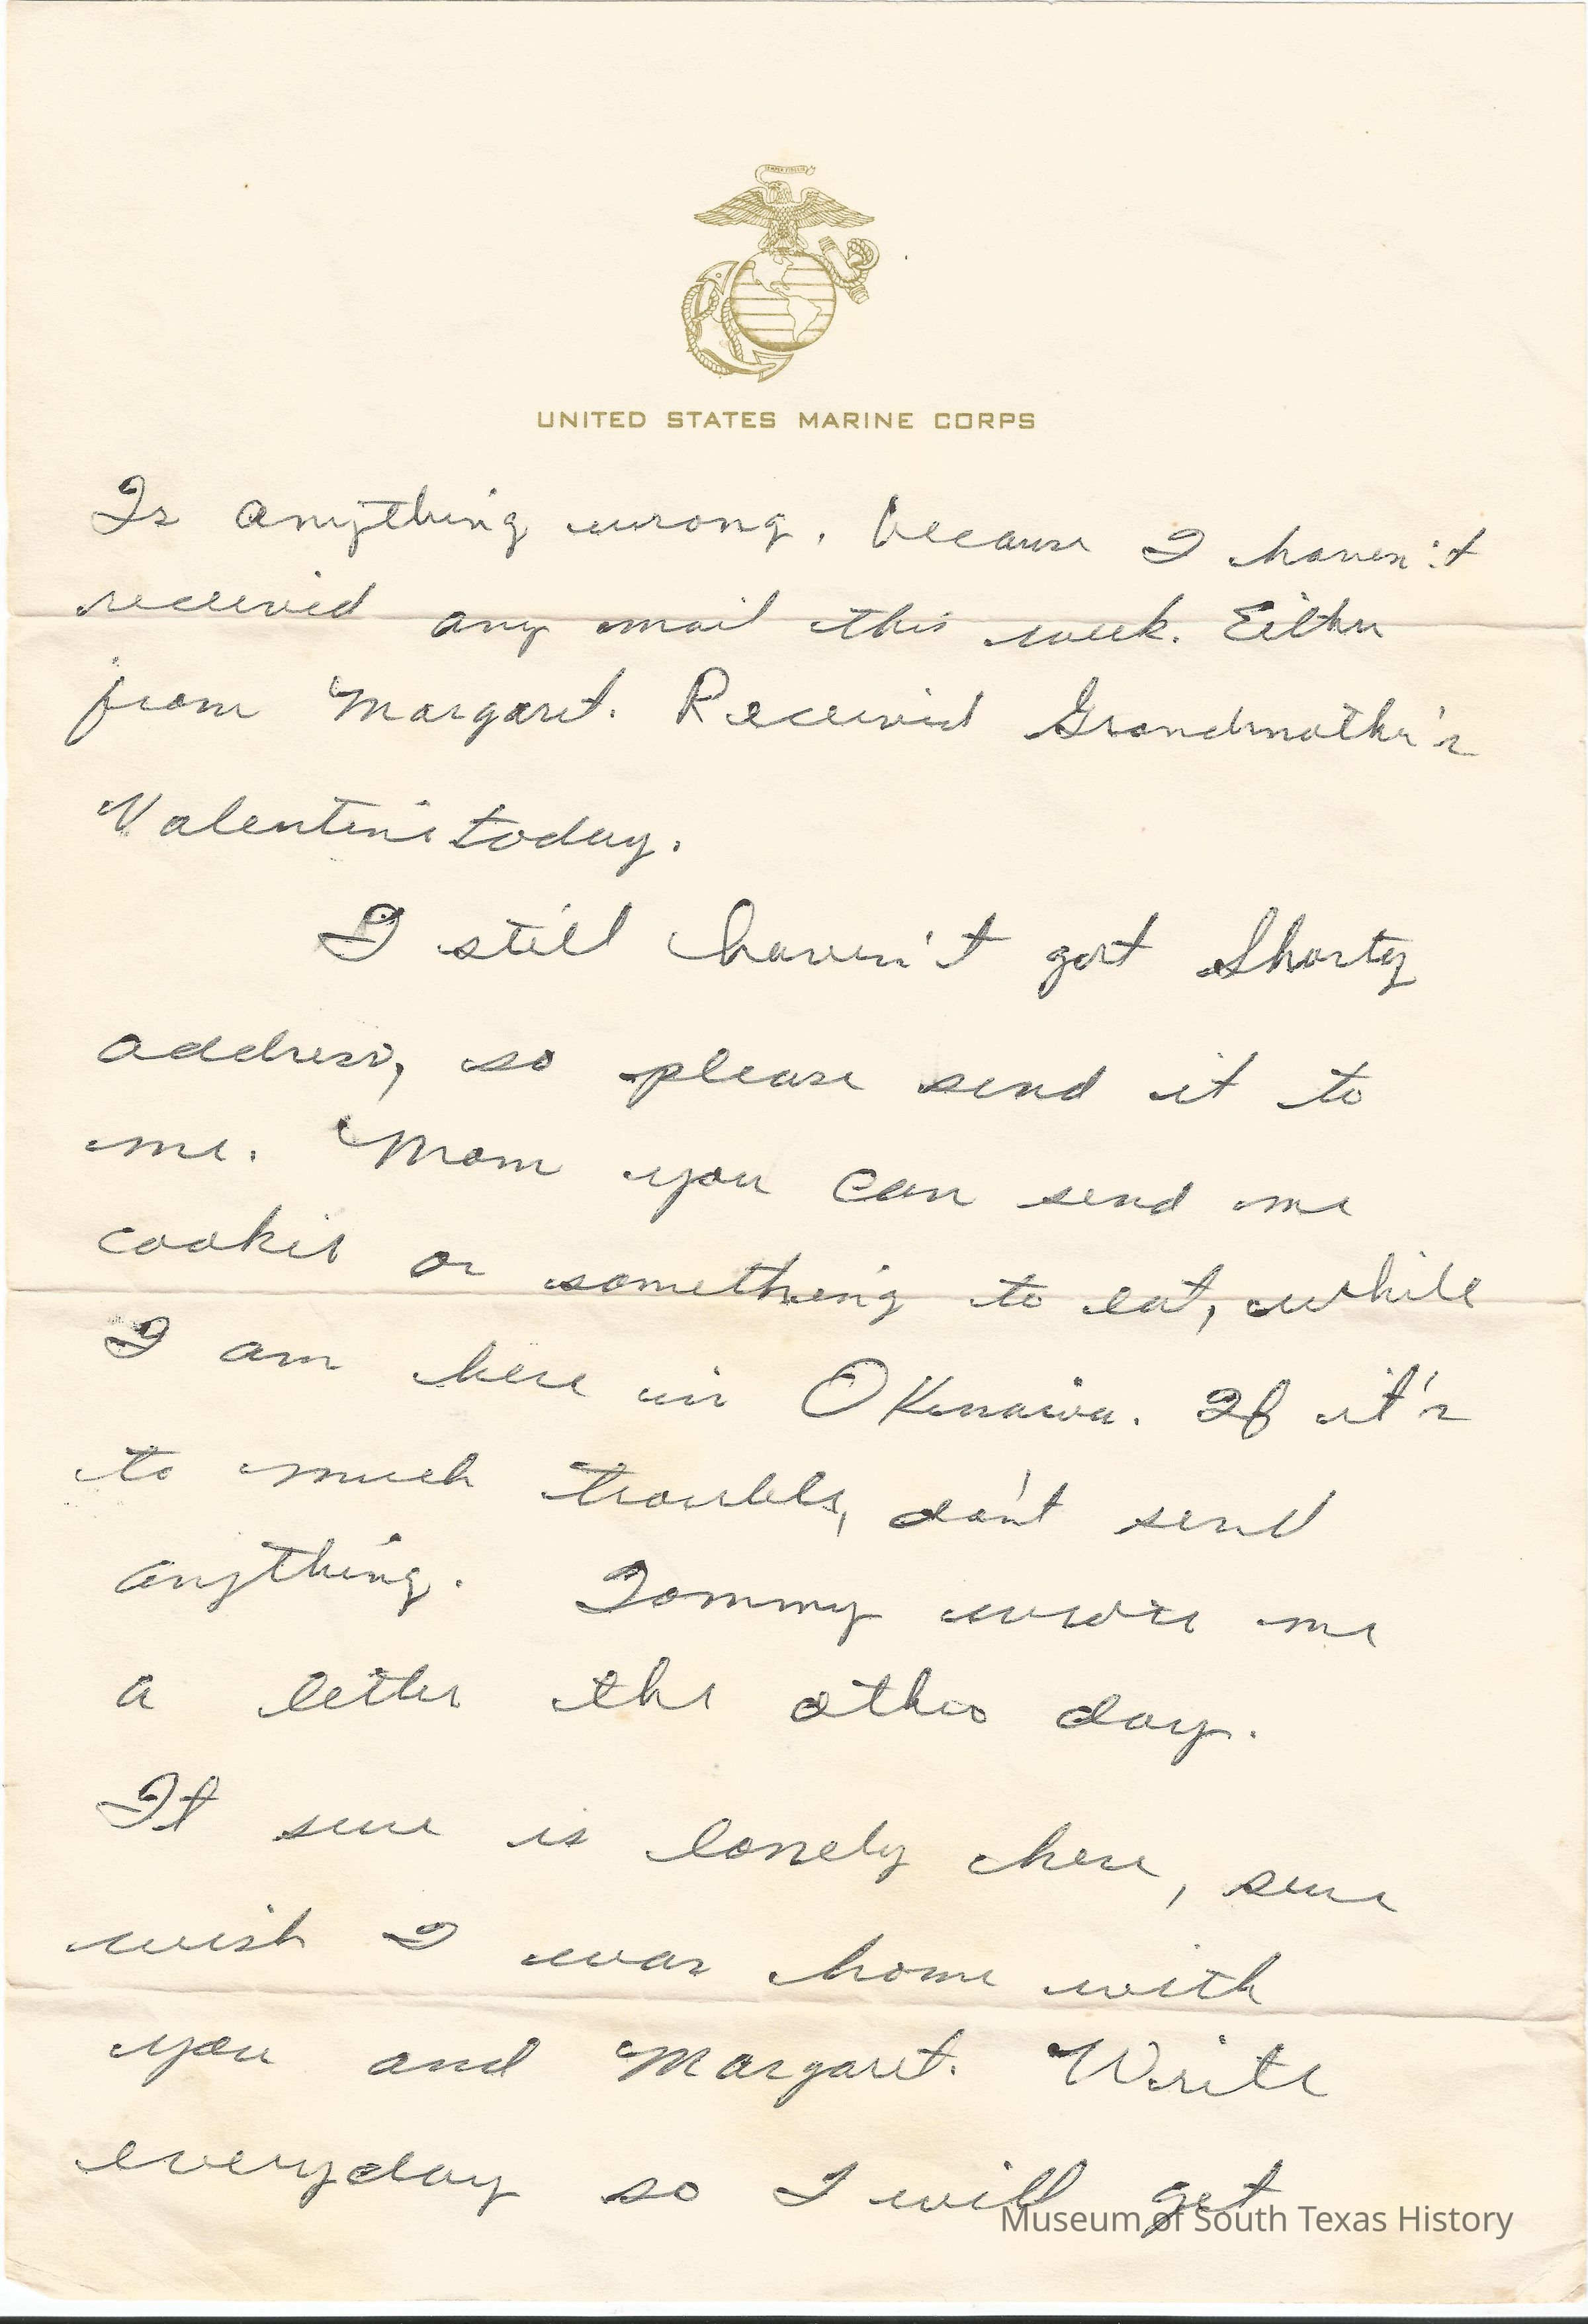 UNITED STATES MARINE CORPS
Is anything wrong, because I haven't
received any mail this week. Either
from Margaret. Received Grandmother's
Valentine today.
I still haven't got Shorty
address, so please send it to
me. Mom you can send me
cookies or something to eat, while
I am here in Okinawa. If it's
to much trouble, don't send
anything. Tommy wrote me
a letter the other day.
It sure is lonely here, sure
wish I was home with
you and Margaret. Write
everyday so I will get
Museum of South Texas History